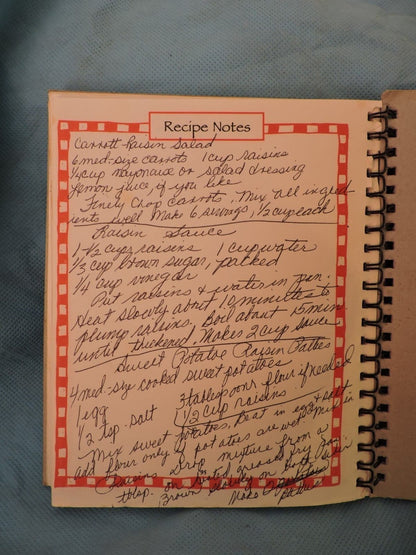 Recipe Notes
Carrott-Raisin Salad
6 med-size carrots 1 cup raisins
1/4 cup mayonaise or salad dressing
Lemon juice if you like
Finely Chop Carrots, Mix all ingred-
ients well Make 6 servings, 1/2 cup each
Raisin Sauce
1-1/2 cups raisins 1 cup water
1/3 cup brown sugar, packed
1/4 cup vinegar
Put raisins & water in pan.
Heat slowly about 10 minutes to
plump raisins. Boil about 15 min
until thickened. Makes 2 cup sauce
Sweet Potatoe Raisin Patties
4 med-size cooked sweet potatoes
1 egg 3 tablespoons flour if needed
1/2 tsp. salt 1/2 cup raisins
Mix sweet potatoes, beat in egg & salt
add flour only if potatoes are wet. Mix in
raisins Drop mixture from a
tblsp. on greased fry pan
Brown slowly on
Make patties